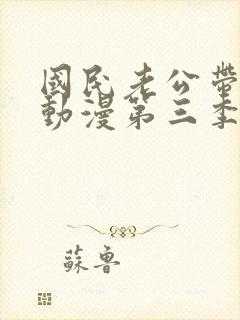 國民老公帶
動漫第三季
蘇魯